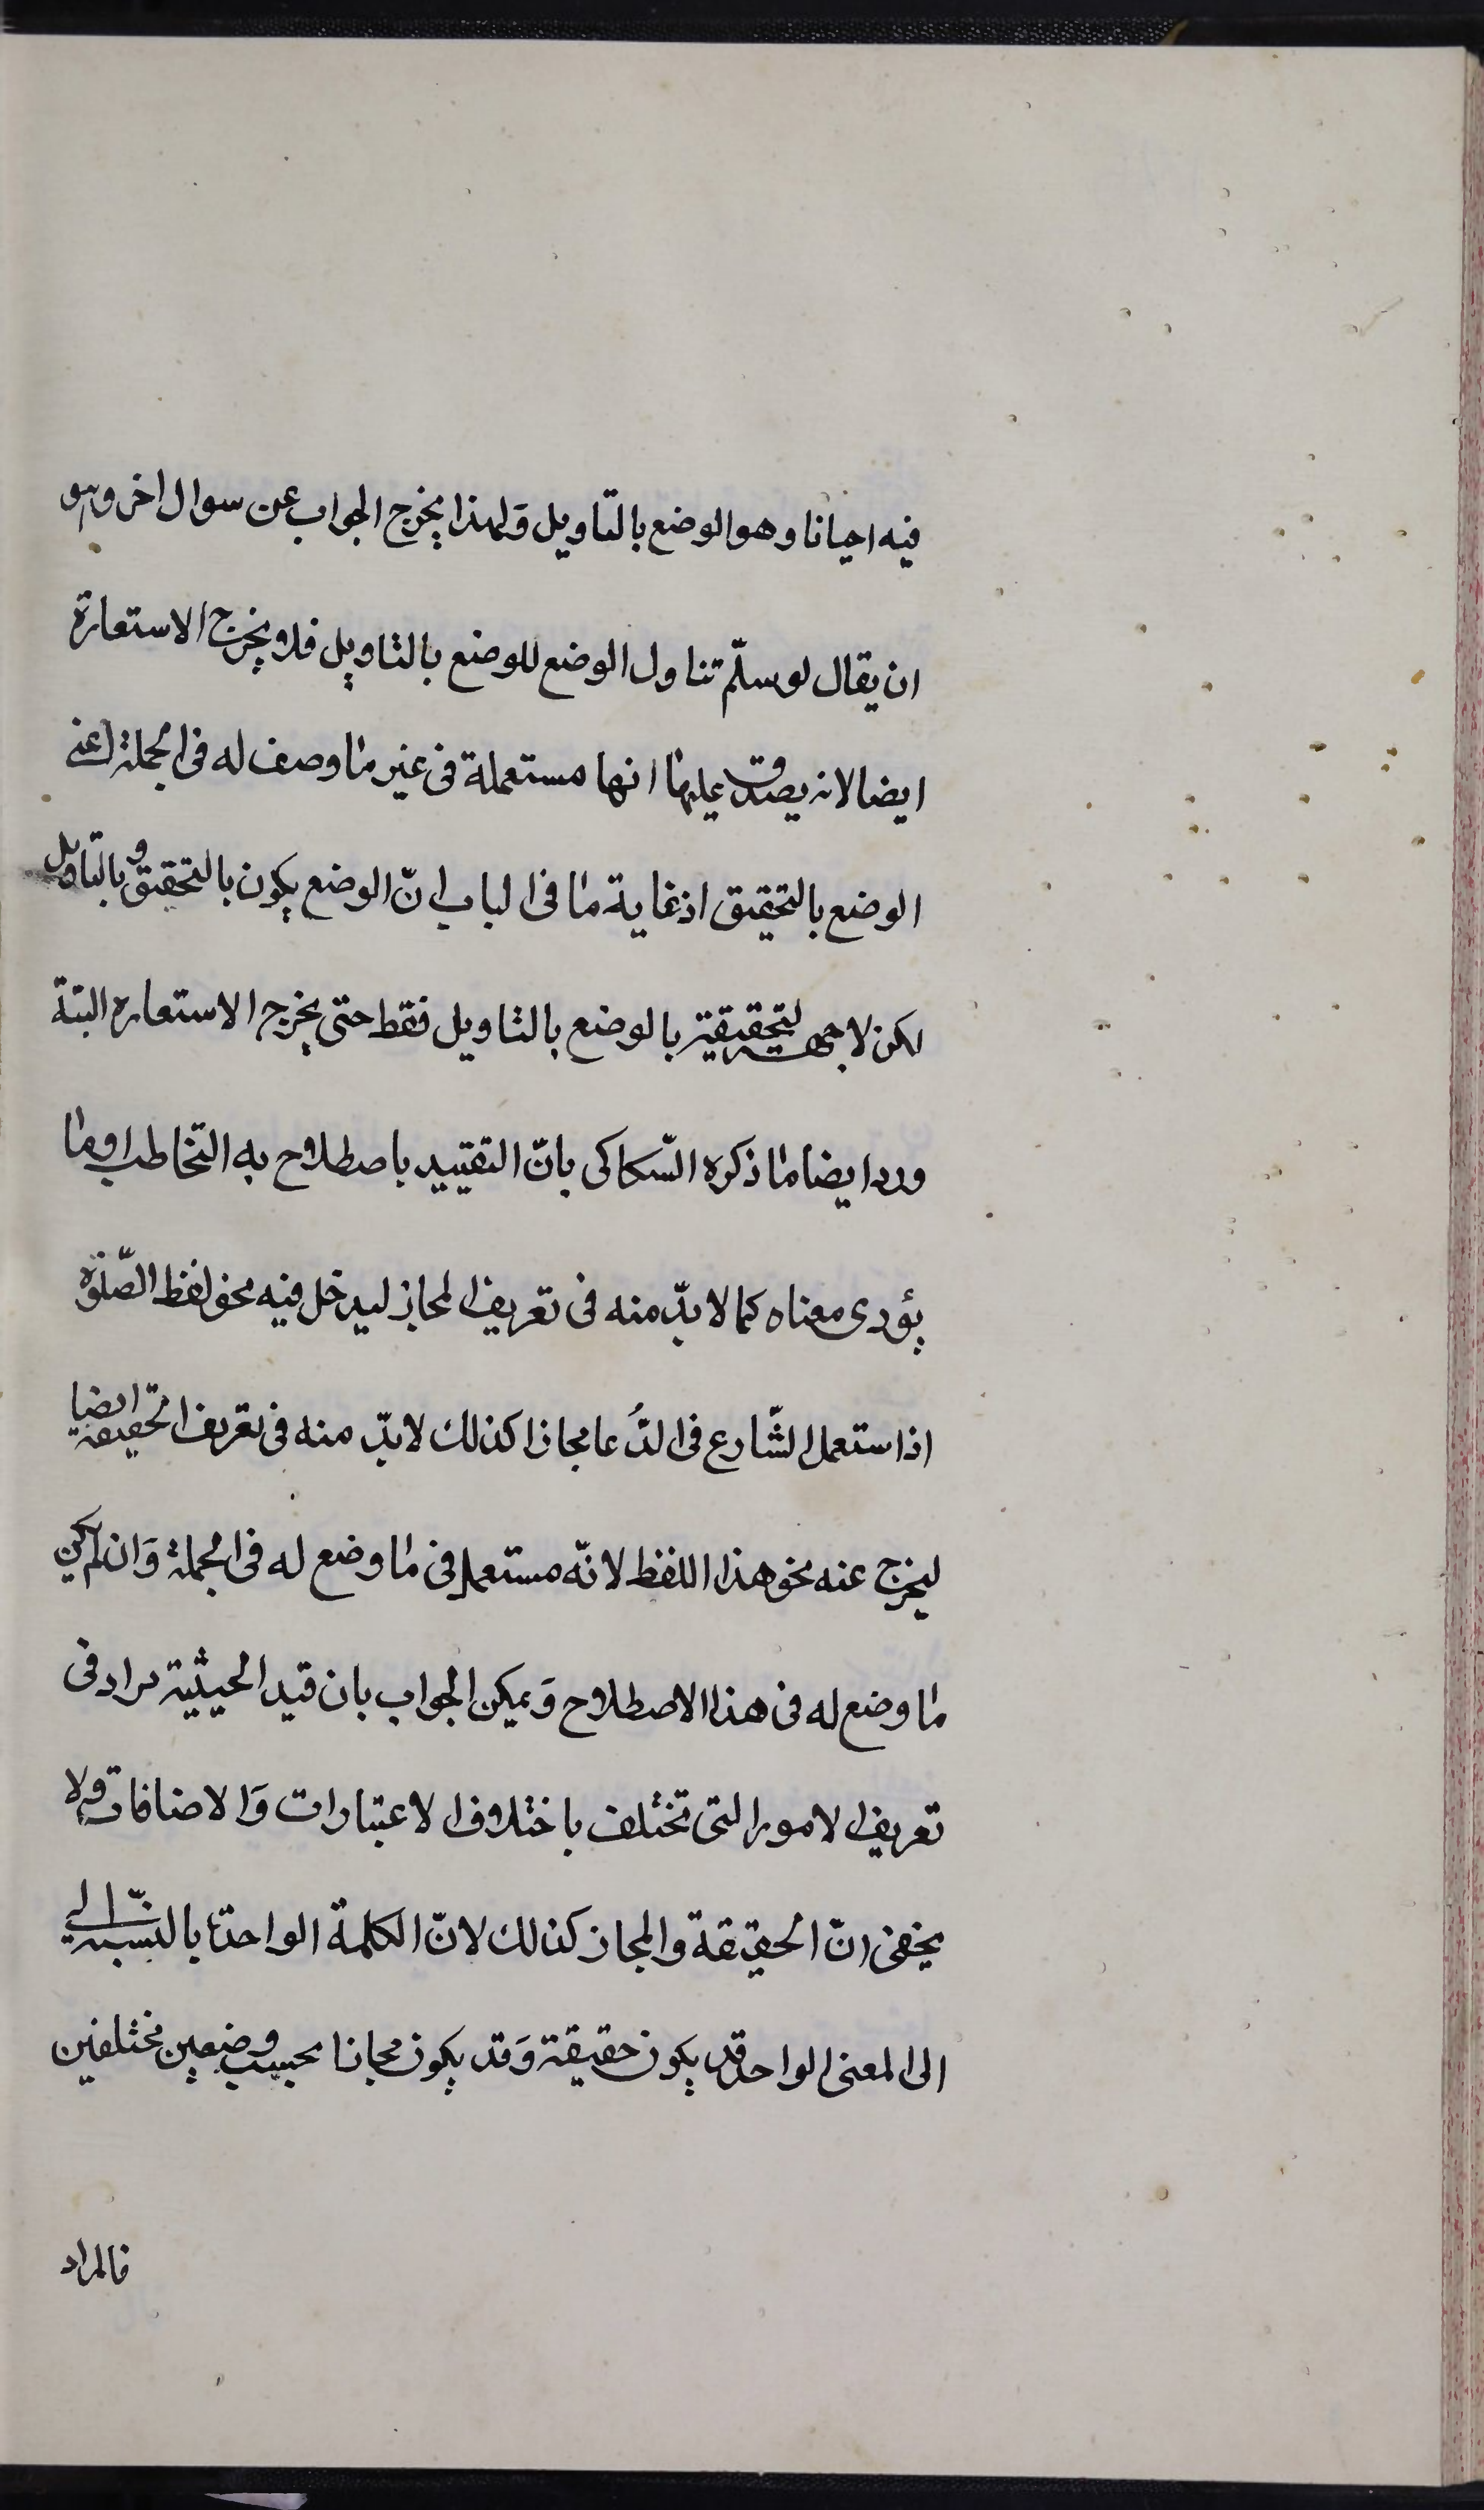 فيه احيانا وهو الوضع بالتاويل وَلهذا يخرج الجواب عن سوال اخر وهو
ان يقال لو سلّم تناول الوضع للوضع بالتاويل فلا يخرج الاستعارة
ايضا لانه يصدق عليها انها مستعملة فى غير ما وصف له فى الجملة اعنى
الوضع بالتحقيق اذ غاية ما فى الباب انّ الوضع يكون بالتحقيق و بالتاويل
لكن لا جهة لتحقيقية بالوضع بالتاويل فقط حتى يخرج الاستعاره البتة
ورد ايضا ما ذكره السّكاكى بانّ التقييد باصطلاح به التخاطب او ما
يؤدى معناه كما لا بدّ منه فى تعريف المجاز ليدخل فيه نحو لفظ الصّلوة
اذا ستعمل الشّارع فى الدُّعا مجازا كذلك لا بدّ منه فى تعريف الحقيقة ايضا
ليخرج عنه نحو هذا اللفظ لانّه مستعمل فى ما وضع له فى الجملة وَان لم يكن
ما وضع له فى هذا الاصطلاح وَيمكن الجواب بان قيد الحيثية مراد فى
تعريف الامور التى تختلف باختلاف الاعتبارات وَالاضافات ولا
يخفى انّ الحقيقة والمجاز كذلك لانّ الكلمة الواحدة بالنسبة الى
الى المعنى الواحد قد يكون حقيقة وَقد يكون مجازا بحسب وضعين مختلفين
فالمراد